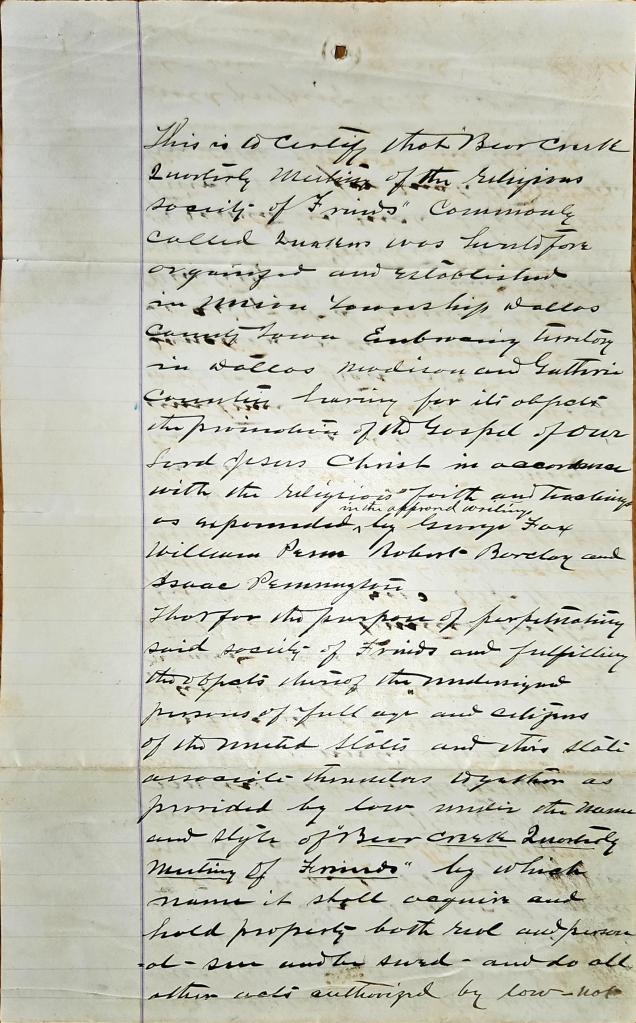 This is to certify that "Bear Creek
Quarterly Meeting of the religious
society of Friends" Commonly
called Quakers was heretofore
organized and established
in Union Township Dallas
County Iowa Embracing territory
in Dallas Madison and Guthrie
Counties having for its objects
the promotion of the Gospel of our
Lord Jesus Christ in accordance
with the religious faith and teachings
in the approved writings
as expounded by George Fox
William Penn Robert Barclay and
Isaac Pennington.
That for the purpose of perpetuating
said society of Friends and fulfilling
the objects thereof the undersigned
persons of full age and citizens
of the United States and this State
associate themselves together as
provided by law under the name
and style of "Bear Creek Quarterly
Meeting of Friends" by which
name it shall acquire and
hold property both real and person
-al - sue and be sued - and do all
other acts authorized by law - not